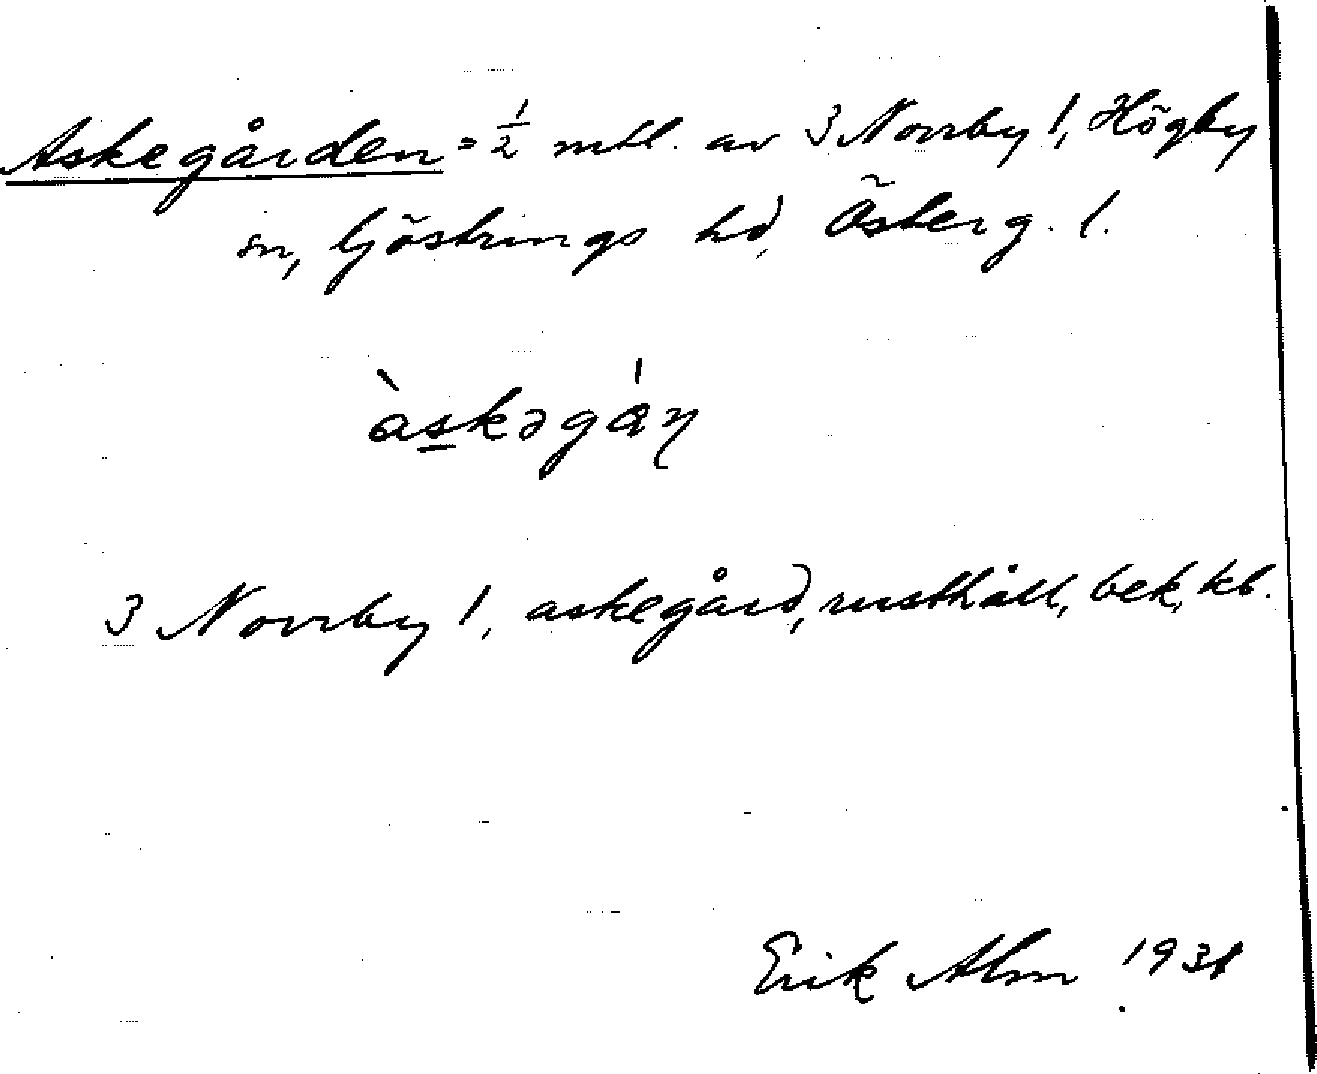 Askegården = 1/2 mtl. av 3 Norrby 1, Högby
sn, Göstrings hd, Österg. l.
àskəgán
3 Norrby 1, askegård, rusthåll, bek, kb.
Erik Alm 1931